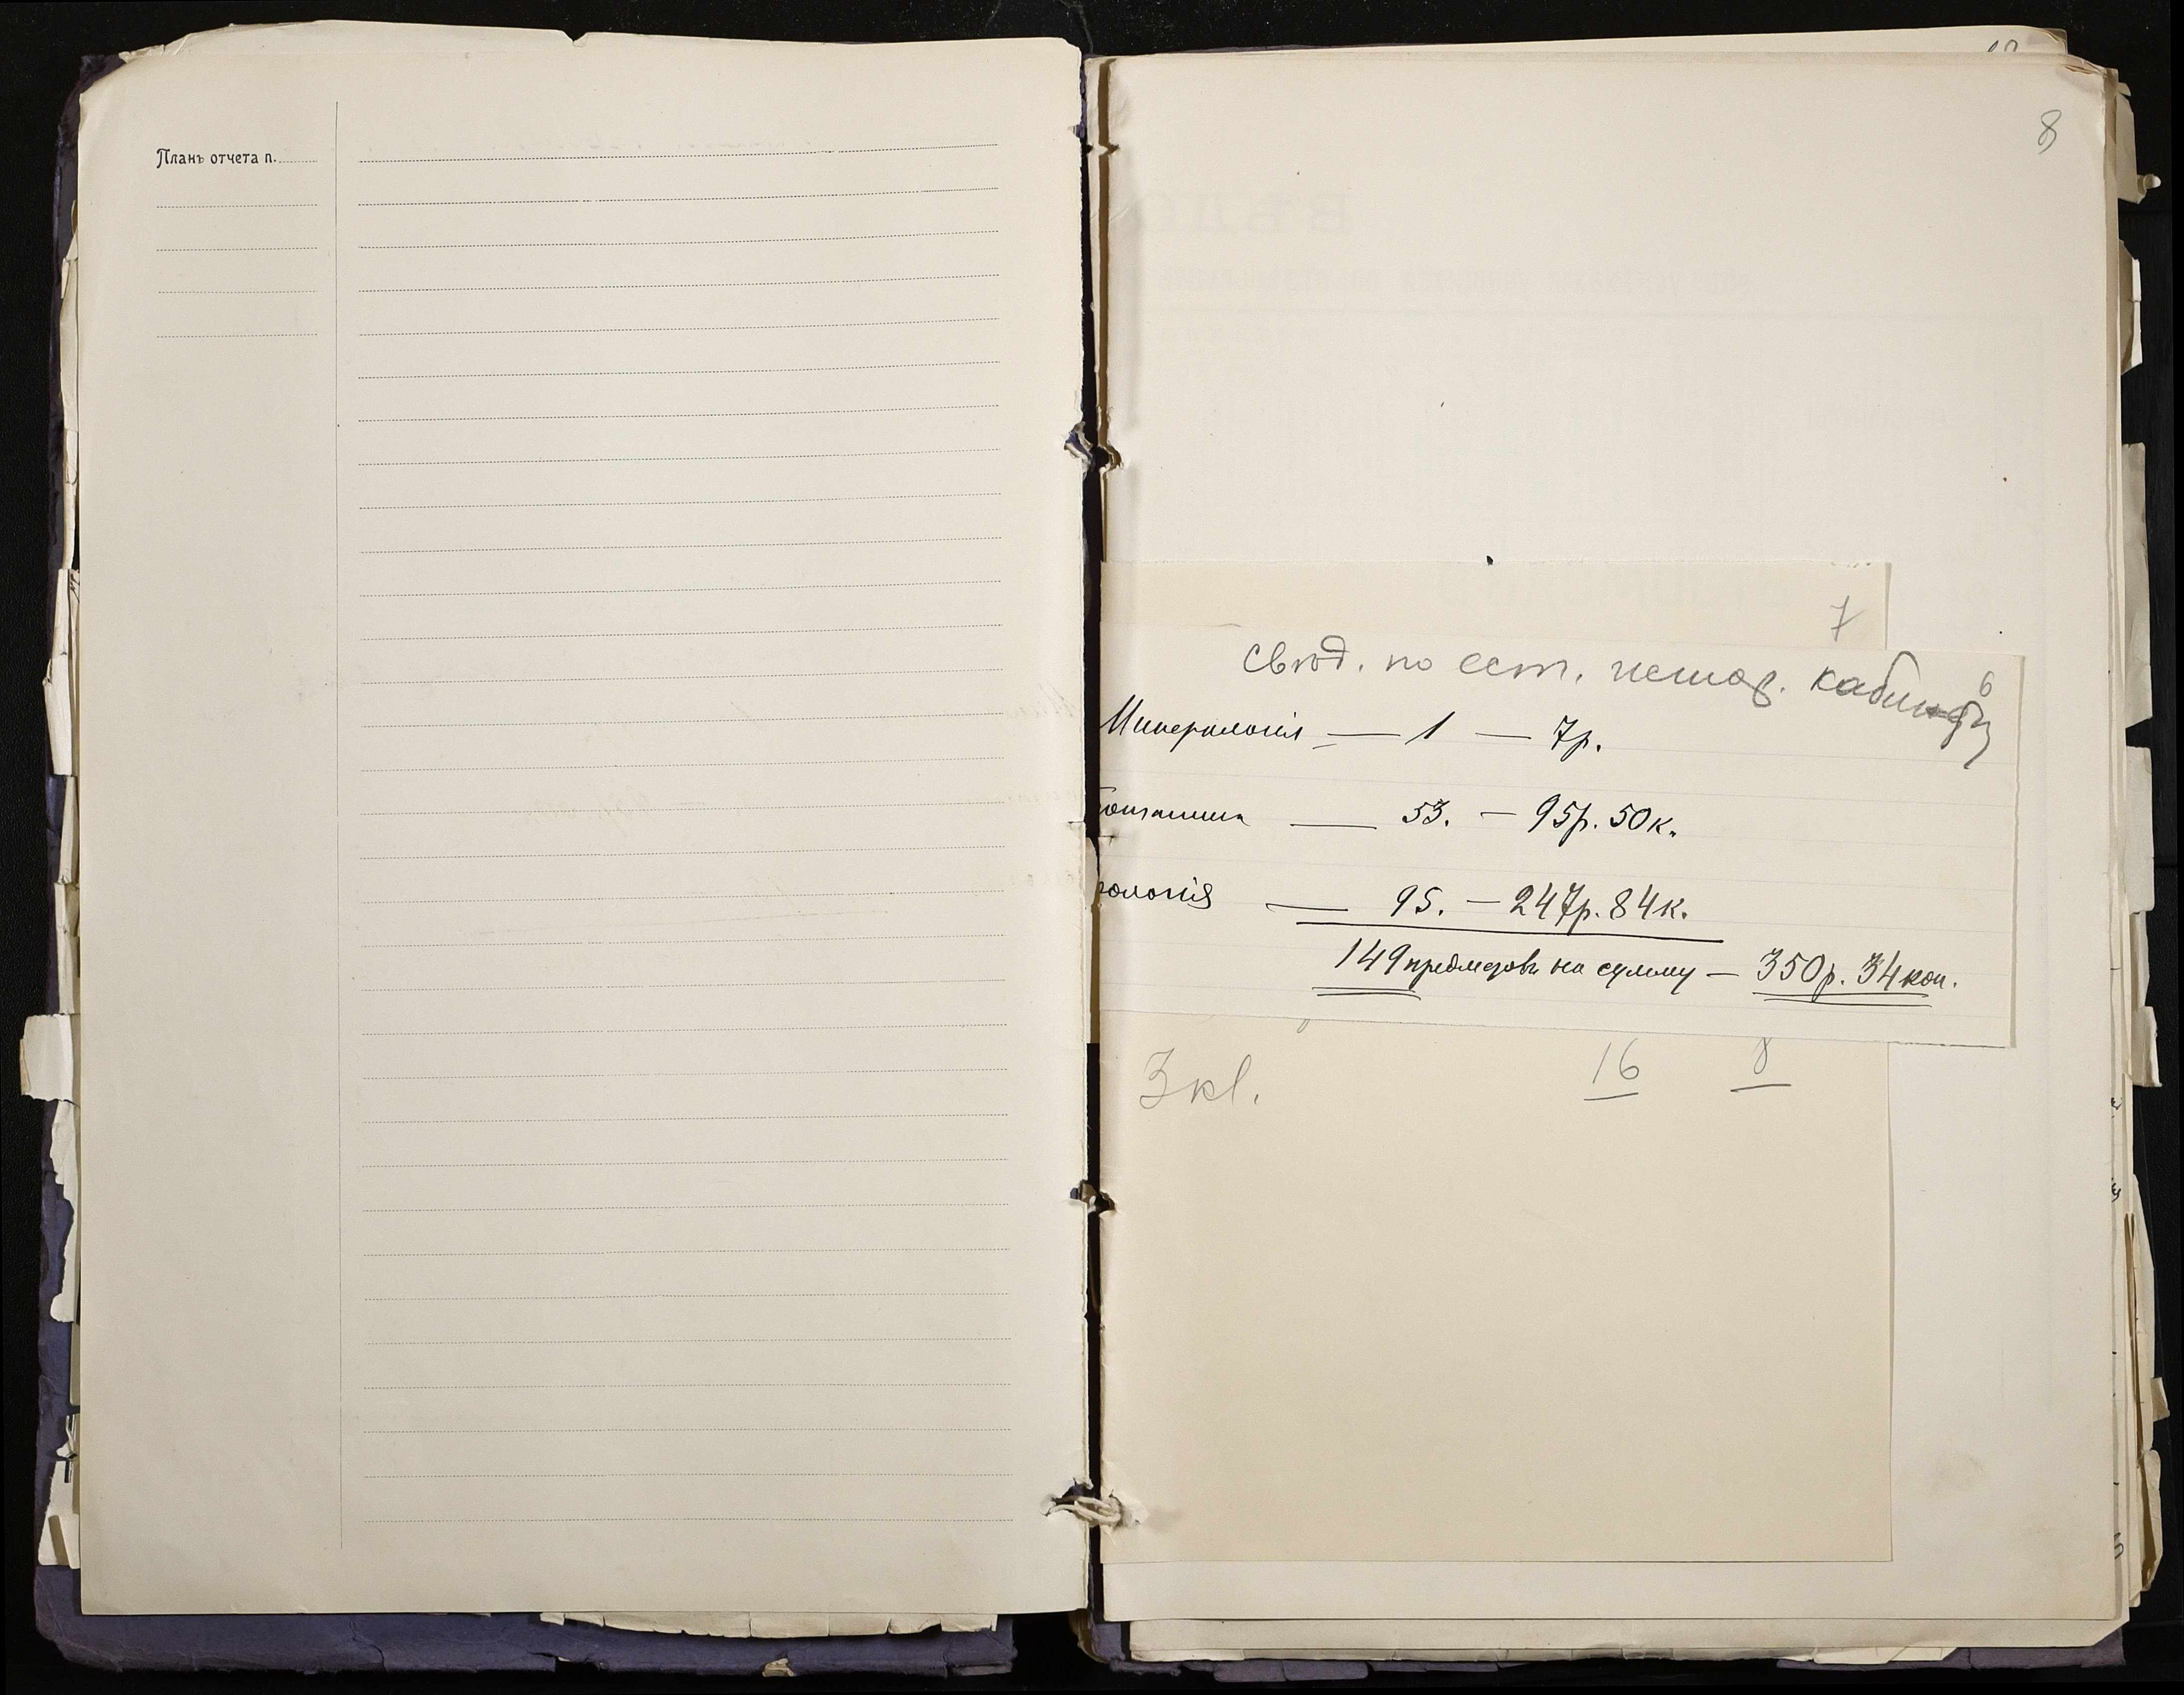 Планъ отчета п.
8
7
Свѣд. по ест. истор. кабинету
6
Минералогія — 1 — 7р.
ботаника — 53. — 95р. 50к.
оологія — 95. — 247р. 84к.
149 предметовъ на сумму — 350р. 34 коп.
3 кл. 16 8